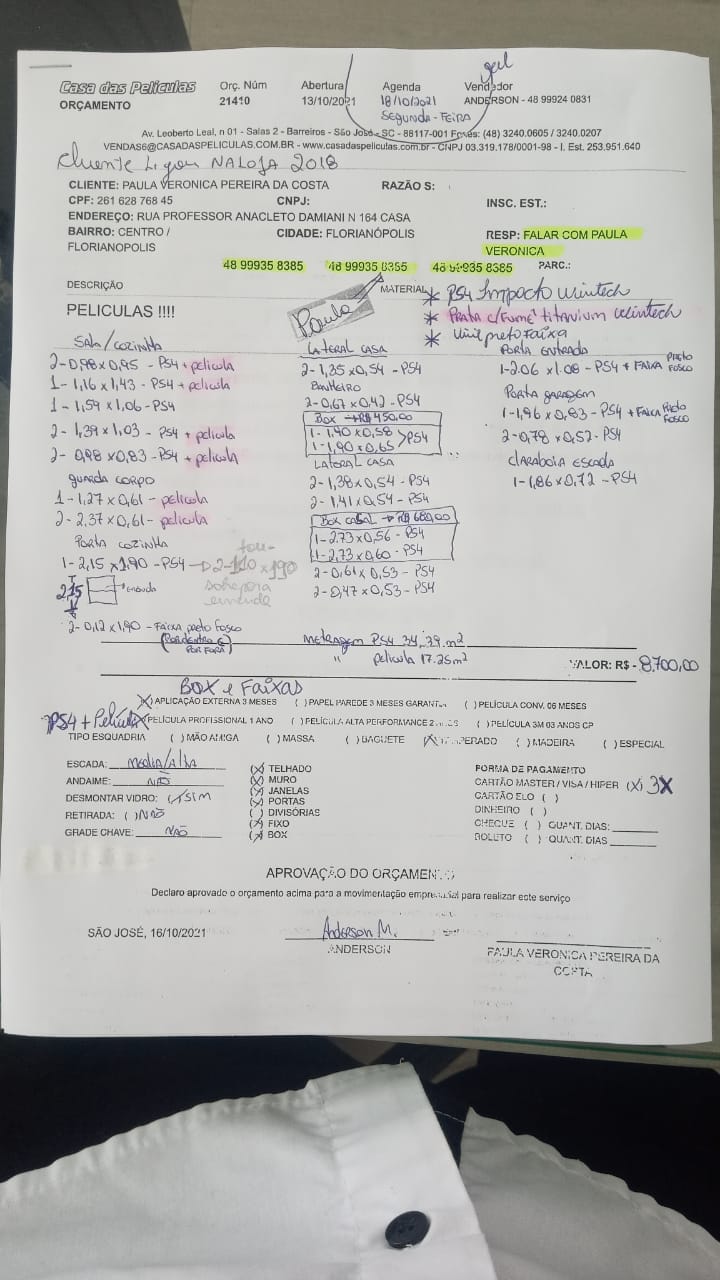 Casa das Películas
ORÇAMENTO
Orç. Núm
21410
Abertura
13/10/2021
Agenda
18/10/2021
SEGUNDA-FEIRA
Vendedor
ANDERSON - 48 99924 0831
Av. Leoberto Leal, n 01 - Salas 2 - Barreiros - São José - SC - 88117-001 Fones: (48) 3240.0605 / 3240.0207
VENDAS6@CASADASPELICULAS.COM.BR - www.casadaspeliculas.com.br - CNPJ 03.319.178/0001-98 - I. Est. 253.951.640
Cliente Ligou NA LOJA 2018
CLIENTE: PAULA VERONICA PEREIRA DA COSTA RAZÃO S:
CPF: 261 628 768 45 CNPJ: INSC. EST.:
ENDEREÇO: RUA PROFESSOR ANACLETO DAMIANI N 164 CASA
BAIRRO: CENTRO / FLORIANOPOLIS
CIDADE: FLORIANÓPOLIS
RESP: FALAR COM PAULA VERONICA
48 99935 8385 48 99935 8385 48 99935 8385 PARC.:
DESCRIÇÃO
MATERIAL
PELICULAS !!!!
Paula
* PS4 Impacto Wintech
* PRATA c/Fumê titanium Wintech
* Vinil preto Faixa
Sala/cozinha
2-0,98 x 0,95 - PS4 + película
1-1,16 x 1,43 - PS4 + película
1-1,59 x 1,06 - PS4
2-1,39 x 1,03 - PS4 + película
2-0,98 x 0,83 - PS4 + película
guarda corpo
1-1,27 x 0,61 - película
2-2,37 x 0,61 - película
Porta cozinha
1-2,15 x 1,90 - PS4 → 2-1,10 x 1,90
sobrepor a
emenda
2,15
emenda
2-0,12 x 1,90 - Faixa preto fosco
(Por dentro e
Por fora)
LATERAL CASA
2-1,35 x 0,54 - PS4
BANHEIRO
2-0,67 x 0,42 - PS4
Box → R$ 450,00
1-1,40 x 0,58
1-1,90 x 0,65 > PS4
LATERAL CASA
2-1,38 x 0,54 - PS4
2-1,41 x 0,54 - PS4
Box CASAL → R$ 680,00
1-2,73 x 0,56 - PS4
1-2,73 x 0,60 - PS4
2-0,61 x 0,53 - PS4
2-0,47 x 0,53 - PS4
PORTA ENTRADA
1-2.06 x 1.08 - PS4 + FAIXA Preto Fosco
Porta garagem
1-1,96 x 0,83 - PS4 + FAIXA Preto Fosco
2-0,78 x 0,52 - PS4
CLARABOIA ESCADA
1-1,86 x 0,72 - PS4
Metragem PS4 34,79 m²
" película 17.25 m²
VALOR: R$ - 8.700,00
Box e Faixas
(X) APLICAÇÃO EXTERNA 3 MESES ( ) PAPEL PAREDE 3 MESES GARANTIA ( ) PELÍCULA CONV. 06 MESES
PS4 + Película (X) PELÍCULA PROFISSIONAL 1 ANO ( ) PELÍCULA ALTA PERFORMANCE 2 ANOS ( ) PELÍCULA 3M 03 ANOS CP
TIPO ESQUADRIA ( ) MÃO AMIGA ( ) MASSA ( ) BAGUETE (X) TEMPERADO ( ) MADEIRA ( ) ESPECIAL
ESCADA: Media/Alta
ANDAIME: NÃO
DESMONTAR VIDRO: (X) SIM
RETIRADA: ( ) NÃO
GRADE CHAVE: NÃO
(X) TELHADO
(X) MURO
(X) JANELAS
(X) PORTAS
( ) DIVISÓRIAS
(X) FIXO
(X) BOX
FORMA DE PAGAMENTO
CARTÃO MASTER / VISA / HIPER (X) 3X
CARTÃO ELO ( )
DINHEIRO ( )
CHEQUE ( ) QUANT. DIAS:
BOLETO ( ) QUANT. DIAS
APROVAÇÃO DO ORÇAMENTO
Declaro aprovado o orçamento acima para a movimentação empresarial para realizar este serviço
SÃO JOSÉ, 16/10/2021
Anderson M.
ANDERSON
PAULA VERONICA PEREIRA DA COSTA